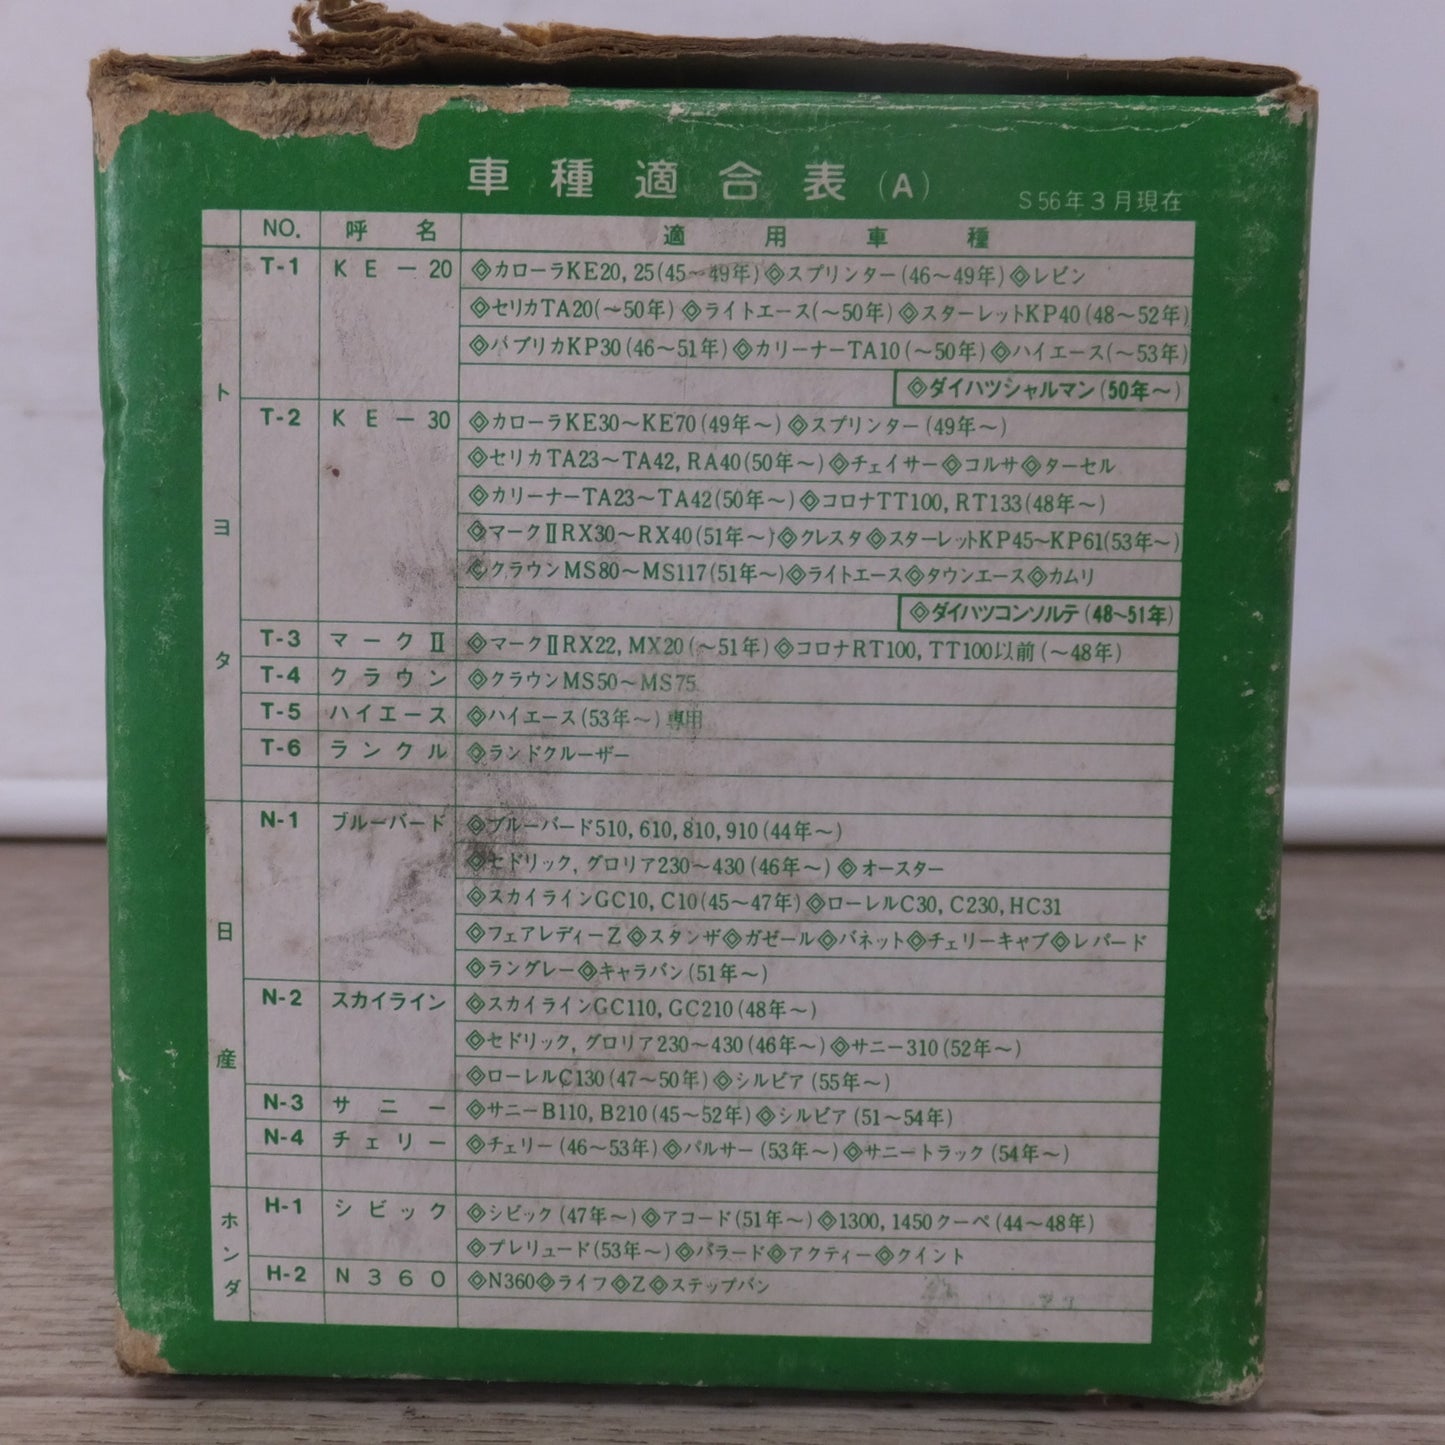 車種適合表(A)
S56年3月現在
NO. 呼名 適用車種
トヨタ
T-1 KE-20 ◎カローラKE20, 25(45〜49年)◎スプリンター(46〜49年)◎レビン
◎セリカTA20(〜50年)◎ライトエース(〜50年)◎スターレットKP40(48〜52年)
◎パブリカKP30(46〜51年)◎カリーナーTA10(〜50年)◎ハイエース(〜53年)
◎ダイハツシャルマン(50年〜)
T-2 KE-30 ◎カローラKE30〜KE70(49年〜)◎スプリンター(49年〜)
◎セリカTA23〜TA42, RA40(50年〜)◎チェイサー◎コルサ◎ターセル
◎カリーナーTA23〜TA42(50年〜)◎コロナTT100, RT133(48年〜)
◎マークⅡRX30〜RX40(51年〜)◎クレスタ◎スターレットKP45〜KP61(53年〜)
◎クラウンMS80〜MS117(51年〜)◎ライトエース◎タウンエース◎カムリ
◎ダイハツコンソルテ(48〜51年)
T-3 マークⅡ ◎マークⅡRX22, MX20(〜51年)◎コロナRT100, TT100以前(〜48年)
T-4 クラウン ◎クラウンMS50〜MS75
T-5 ハイエース ◎ハイエース(53年〜)専用
T-6 ランクル ◎ランドクルーザー
日産
N-1 ブルーバード ◎ブルーバード510, 610, 810, 910(44年〜)
◎セドリック, グロリア230〜430(46年〜)◎オースター
◎スカイラインGC10, C10(45〜47年)◎ローレルC30, C230, HC31
◎フェアレディーZ◎スタンザ◎ガゼール◎バネット◎チェリーキャブ◎レパード
◎ラングレー◎キャラバン(51年〜)
N-2 スカイライン ◎スカイラインGC110, GC210(48年〜)
◎セドリック, グロリア230〜430(46年〜)◎サニー310(52年〜)
◎ローレルC130(47〜50年)◎シルビア(55年〜)
N-3 サニー ◎サニーB110, B210(45〜52年)◎シルビア(51〜54年)
N-4 チェリー ◎チェリー(46〜53年)◎パルサー(53年〜)◎サニートラック(54年〜)
ホンダ
H-1 シビック ◎シビック(47年〜)◎アコード(51年〜)◎1300, 1450クーペ(44〜48年)
◎プレリュード(53年〜)◎バラード◎アクティー◎クイント
H-2 N360 ◎N360◎ライフ◎Z◎ステップバン